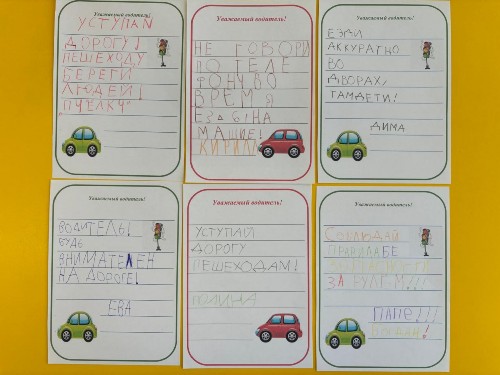 Уважаемый водитель!
УСТУПАN
ДОРОГУ!
ПЕШЕХОДУ
БЕРЕГИ
ЛЮДЕЙ!
"ПЧЁЛКИ"
Уважаемый водитель!
НЕ ГОВОРИ
ПО ТЕЛЕ
ФОНУ ВО
ВРЕМЯ
ЕЗДЫ НА
МАШИНЕ!
КИРИЛЛ
Уважаемый водитель!
ЕЗДИ
АККУРАТНО
ВО
ДВОРАХ,
ТАМ ДЕТИ!
ДИМА
Уважаемый водитель!
ВОДИТЕЛЬ!
БУДЬ
ВНИМАТЕЛЕН
НА ДОРОГЕ!
ЕВА
Уважаемый водитель!
УСТУПАЙ
ДОРОГУ
ПЕШЕХОДАМ!
ПОЛИНА
Уважаемый водитель!
СОБЛЮДАЙ
ПРАВИЛА БЕ
ЗА РУЛЕМ!!!
ПАПЕ!!!